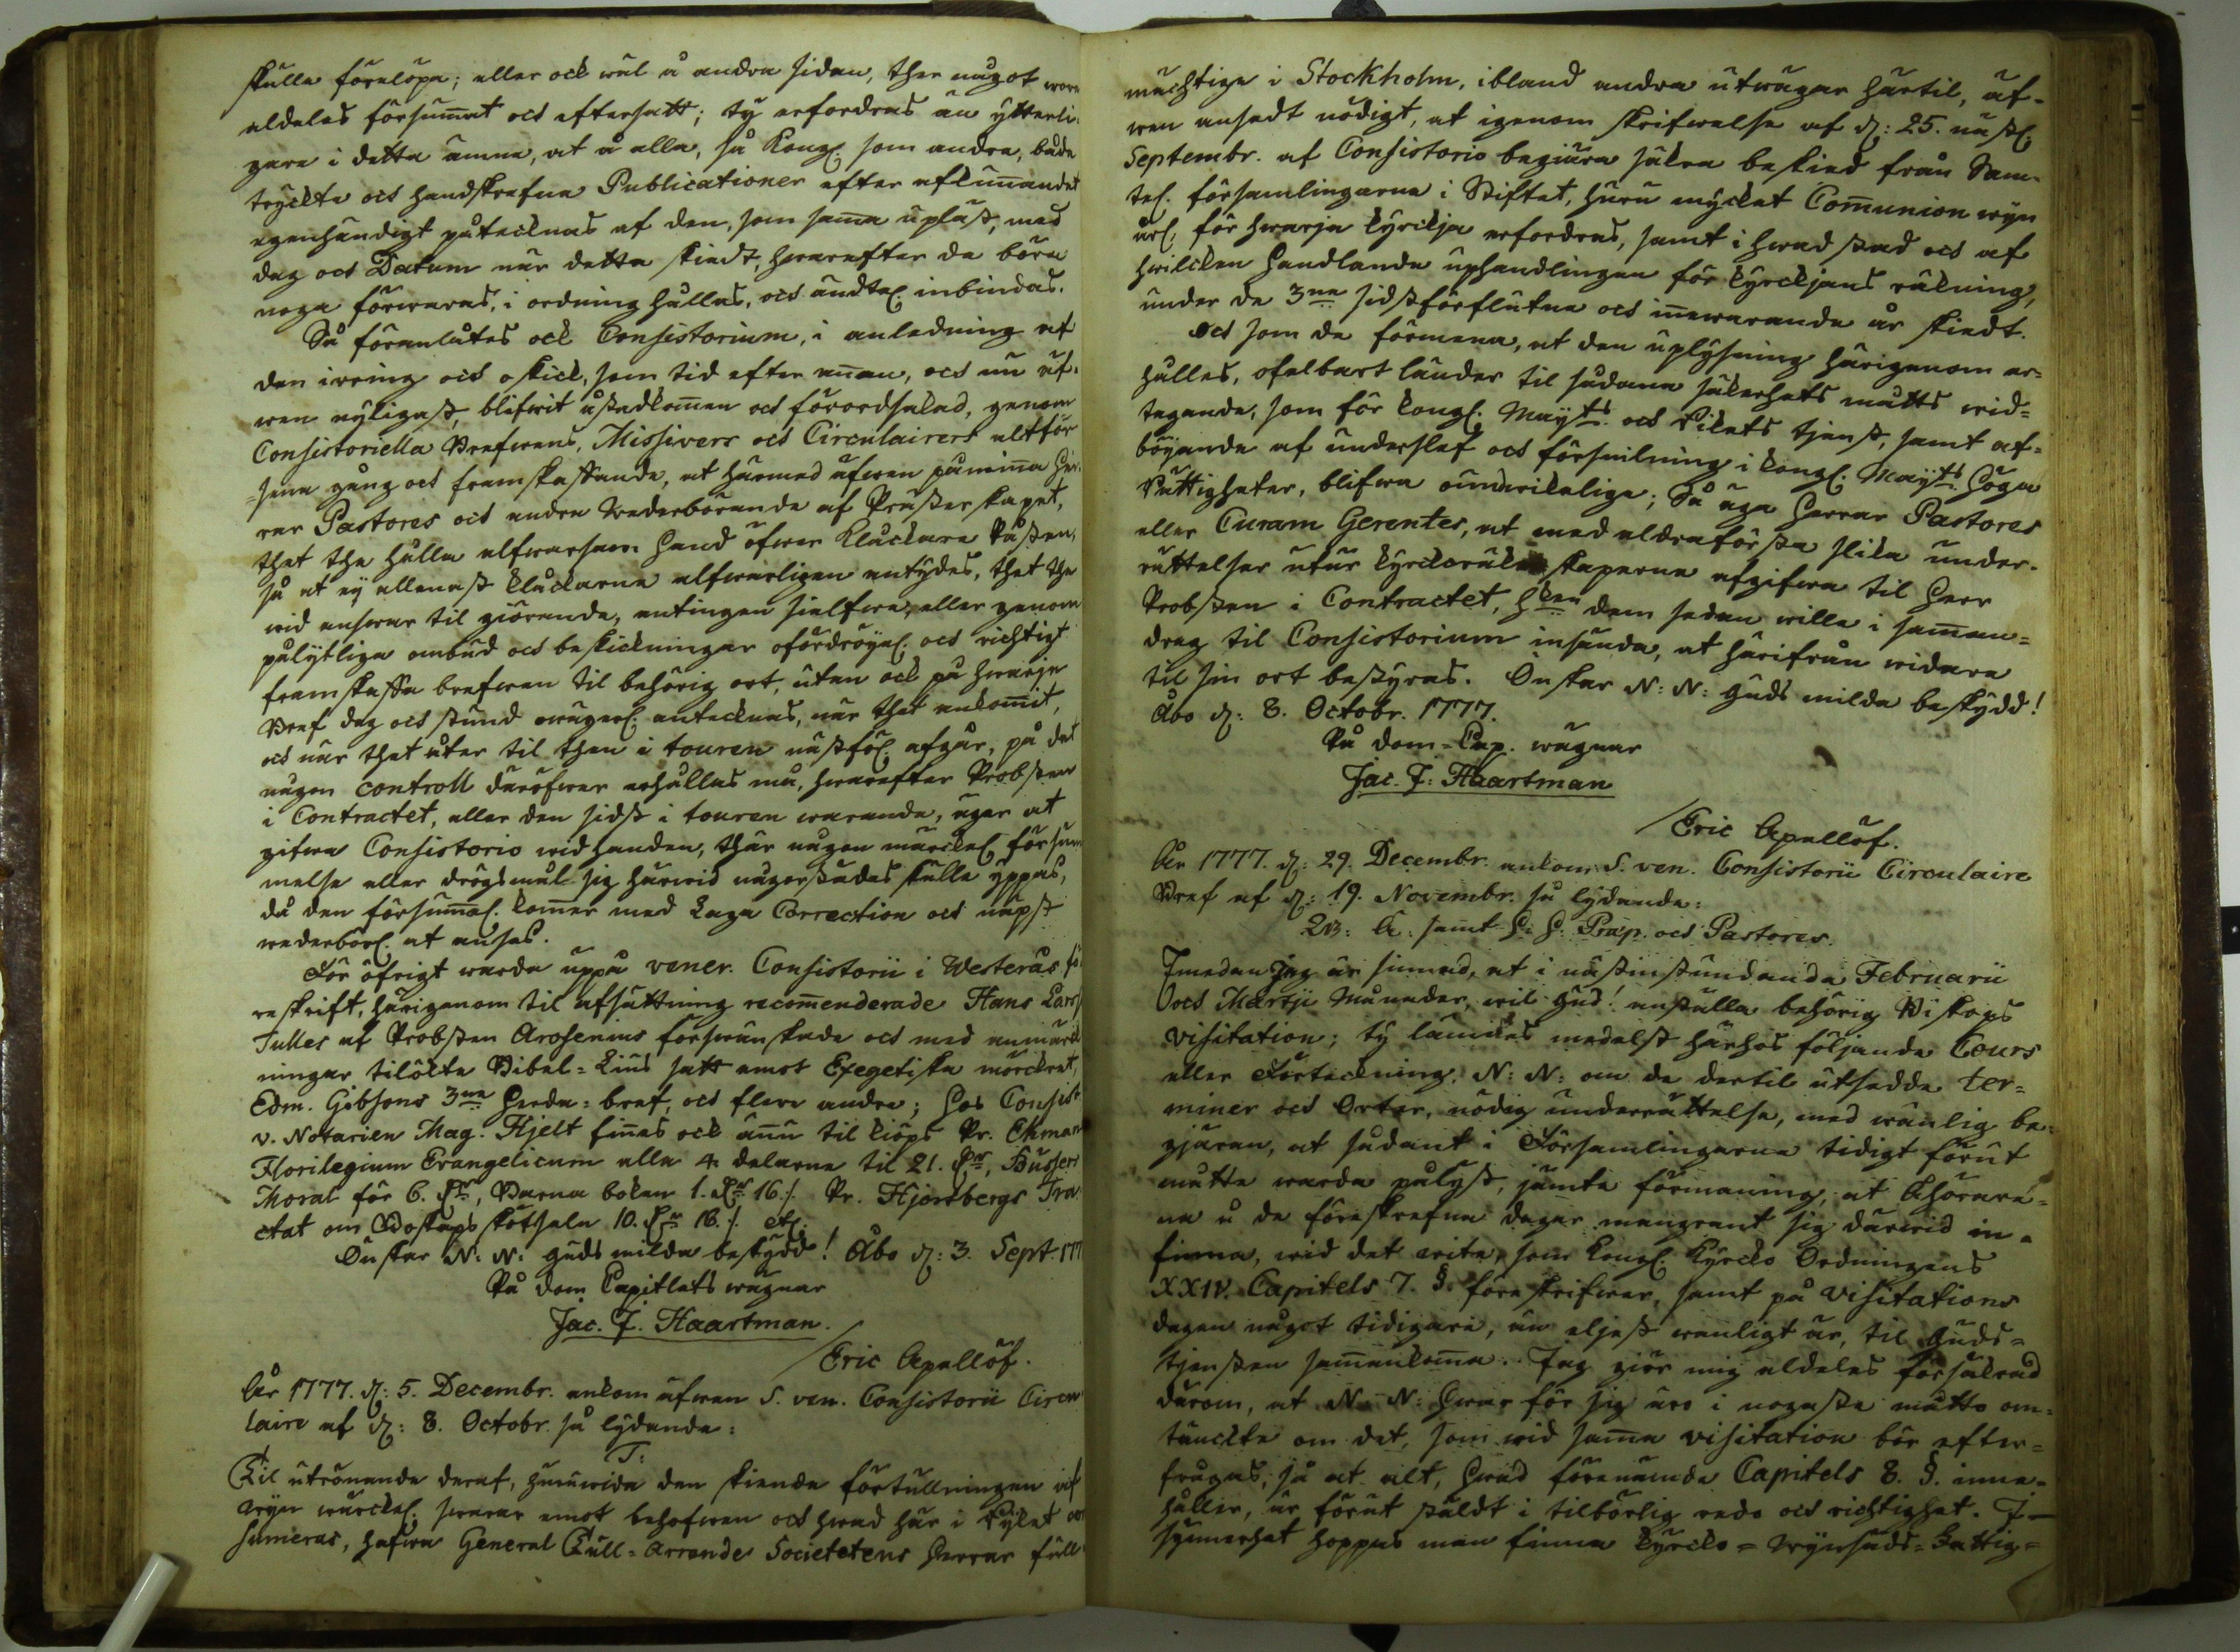 skulle förelöpa; eller ock wäl å andra sidan, ther något wore
aldeles försum̄at och eftersatt; ty erfordras än ytterli-
gare i detta ämne, at å alla, så Kongl. som andra, både
tryckte och handskrefne Publicationer efter aflunandet
egenhändigt påtecknas af den, som sam̄a upläst, med
dag och Datum när detta skiedt, hwarefter de böra
noga förwaras, i ordning hållas, och ändtel. inbindas.
Så föranlåtes ock Consistorium, i anledning af
den irring och oskick, som tid efter an̄an, och nu äf-
wen nyligast, blifwit åstadkom̄en och förordsakad, genom
Consistoriella Brefwens, Missivers och Circulairers altför
sena gång och framskaffande, at härmed äfwen påmin̄a Her-
rar Pastores och andra Wederbörande af Prästerskapet,
thet the hålla alfwarsam hand öfwer Kläckare Påsten,
så at ej allenast klåckarne alfwarligen antydes, thet the
wid answar til giörande, antingen sielfwe, eller genom
pålytliga ombud och beskickningar ofördröyel. och richtigt
framskaffa brefwen til behörig ort, utan ock på hwarje
Bref dag och stund owägerl. antecknas, när thet ankom̄it,
och när thet åter til then i touren nästföl. afgår, på det
någon controll däröfwer erhållas må, hwarefter Probsten
i Contractet, eller den sidst i touren warande, äger at
gifwa Consistorio wid handen, thär någon märckel. försum
melse eller drögsmål sig härwid någorstädes skulle yppas,
då den försum̄el. kom̄er med Laga Correction och näpst
wederbörl. at anses.
För öfrigt warda uppå vener. Consistorii i Westerås fö
reskrift, härigenom til afsättning recom̄enderade Hans Lars
Tulles af Probsten Arosenius förswänskade och med anmärck
ningar tilökte Bibel-Lius satt emot Exegetiska mörckret,
Edm. Gibsons 3ne Herda-bref, och flere andre; hos Consist
v. Notarien Mag. Hjelt fin̄es ock än̄u til kiöps Pr. Ekman
Florilegium Evangelicum alla 4 delarne til 21. dlr, Büssers
Moral för 6. dlr, Barna boken 1. dlr 16./. Pr. Hjortbergs Tra
ctat om Boskaps skötseln 10. dlr 16./. etc.
Önskar N: N: Guds milda beskydd! Åbo d: 3. Sept 177
På Dom Capitlets wägnar
Jac. J. Haartman.
/Eric Apellöf.
År 1777. d: 5. Decembr. ankom äfwen S. ven. Consistorii Circu
laire af d: 8. Octobr. så lydande:
T:
Til utrönande deraf, huruwida den skiende förtullningen af
wijn wärckel. swarar emot behofwen och hwad här i Rijket con
sumeras, hafwa General Tull-Arrende Societetens Herrar full
mächtige i Stockholm, ibland andra utwägar härtil, äf-
wen ansedt nödigt, at igenom skrifwelse af d: 25. näst
Septembr. af Consistorio begiära säkra beskied från Sam-
tel. församlingarne i Stiftet, huru mycket Com̄union wijn
årl. för hwarje kyrckja erfordras, samt i hwad stad och af
hwilcken Handlande uphandlingen för kyrckjans räkning,
under de 3ne sidstförflutne och in̄ewarande år skiedt.
Och som de förmena, at den uplysning härigenom er-
hålles, ofelbart länder til sådana säkerhets mått wid-
tagande, som för Kongl. Mayts och Rikets tjenst, samt af-
böyande af underslef och försnilning i Kongl. Mayts Höga
Rättigheter, blifwa oundwikelige; Så äga Herrar Pastores
eller Curam Gerentes, at med aldraförsta slika under-
rättelser utur kyrckoräkenskaperne afgifwa til Herr
Probsten i Contractet, hken dem sedan wille i sam̄an-
drag til Consistorium insända, at härifrån widare
til sin ort bestyras. Önskar N: N: Guds milda beskydd!
Åbo d: 8. Octobr. 1777.
På Dom-Cap. wägnar
Jac. J: Haartman
/Eric Apellöf.
År 1777. d: 29. Decembr. ankom S. ven. Consistorii Circulaire
Bref af d: 19. Novembr. så lydande:
samt H: H: Præp. och Pastores.
Imedan Jag är sinnad, at i nästinstundande Februarii
och Martji Månader, wil Gud! anställa behörig Biskops
visitation; ty lämnas medelst härhos följande Cours
eller Förteckning, N: N: om de dertil utsedde ter-
miner och Orter, nödig underrättelse, med wänlig be-
gjäran, at sådant i Församlingarne tidigt förut
måtte warda pålyst, jämte förmaning, at Åhörare-
na å de föreskrefna dagar mangrant sig därwid in-
finna, wid det wite, som Kongl. Kyrcko Ordningens
XXIV. Capitels 7. §. föreskrifwer, samt på visitations
dagen något tidigare, än eljest wanligt är, til Guds-
tjensten sam̄ankom̄a. Jag giör mig aldeles försäkrad
därom, at N: N: hwar för sig äro i nogaste mått om-
tänckte om det, som wid sam̄a visitation bör efter-
frågas, så at alt, hwad förenämde Capitels 8. §. inne-
håller, är förut stäldt i tilbörlig redo och richtighet. I
synnerhet hoppas man finna kyrcko-wijnsäds-Fattig-